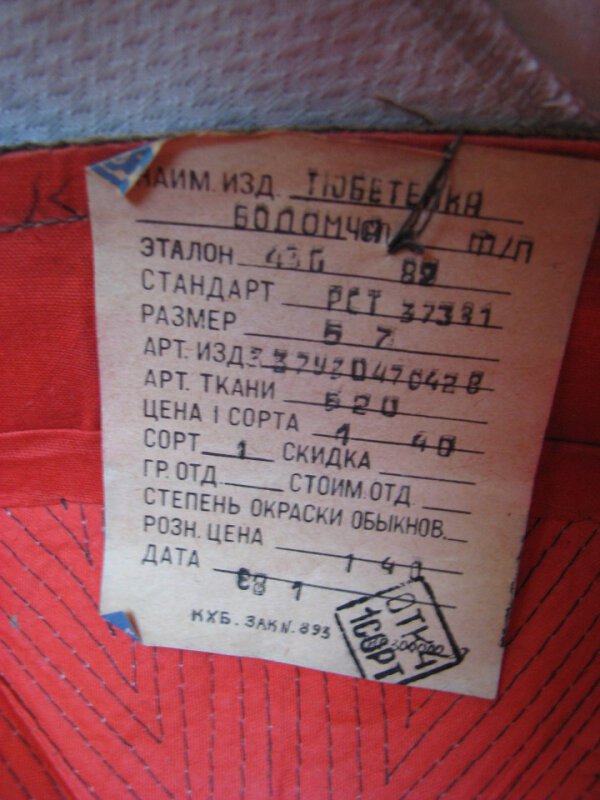 НАИМ. ИЗД. ТЮБЕТЕЙКА
БОДОМЧА П/П
ЭТАЛОН 436 82
СТАНДАРТ РСТ 37381
РАЗМЕР 57
АРТ. ИЗД.
АРТ. ТКАНИ 520
ЦЕНА I СОРТА 1 40
СОРТ 1 СКИДКА
ГР. ОТД. СТОИМ. ОТД.
СТЕПЕНЬ ОКРАСКИ ОБЫКНОВ.
РОЗН. ЦЕНА 1 40
ДАТА
КХБ. ЗАК N. 893
ОТК-4
1СОРТ